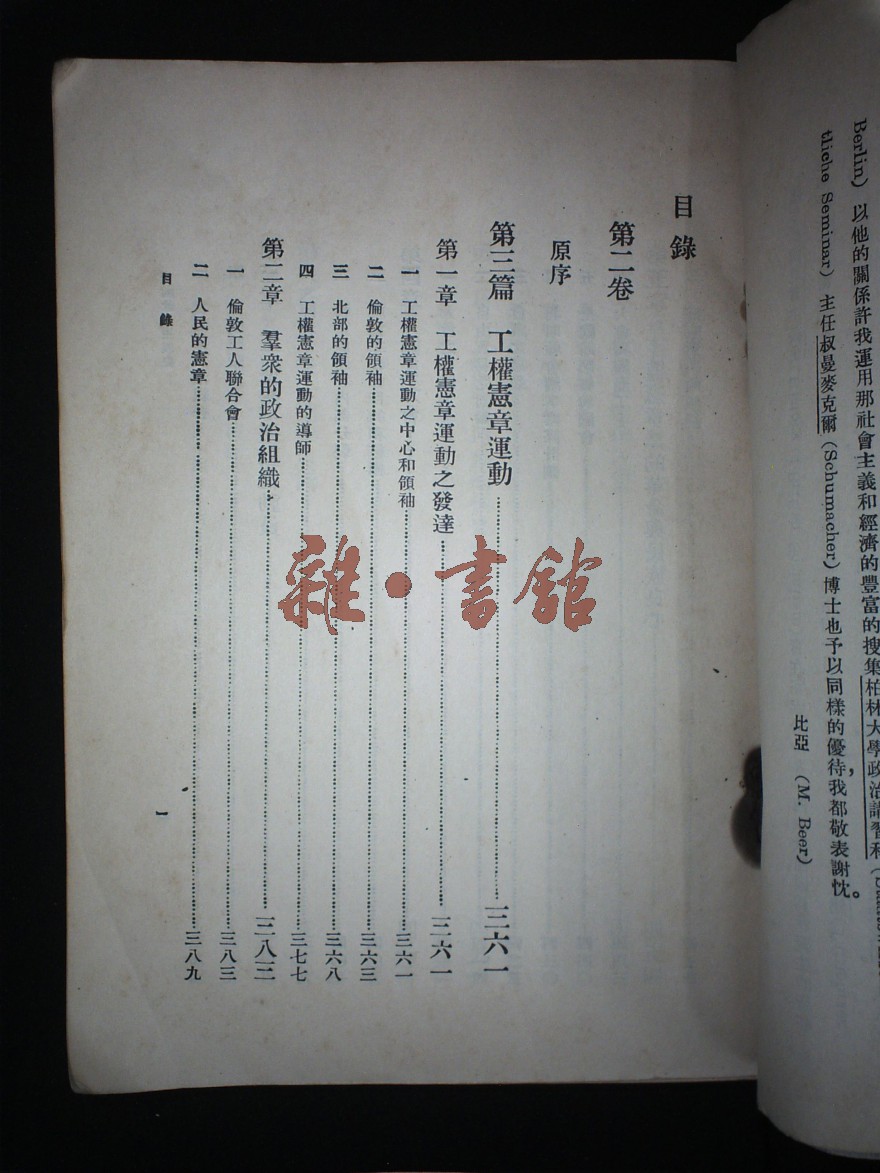 Berlin) 以他的關係許我運用那社會主義和經濟的豐富的搜集柏林大學政治講習科
tliche Seminar) 主任叔曼麥克爾 (Schumacher) 博士也予以同樣的優待,我都敬表謝忱。
比亞 (M. Beer)
目錄
第二卷
原序
第三篇 工權憲章運動……三六一
第一章 工權憲章運動之發達……三六一
一 工權憲章運動之中心和領袖……三六一
二 倫敦的領袖……三六三
三 北部的領袖……三六八
四 工權憲章運動的導師……三七七
第二章 羣衆的政治組織……三八三
一 倫敦工人聯合會……三八三
二 人民的憲章……三八九
目錄
一
雜·書館